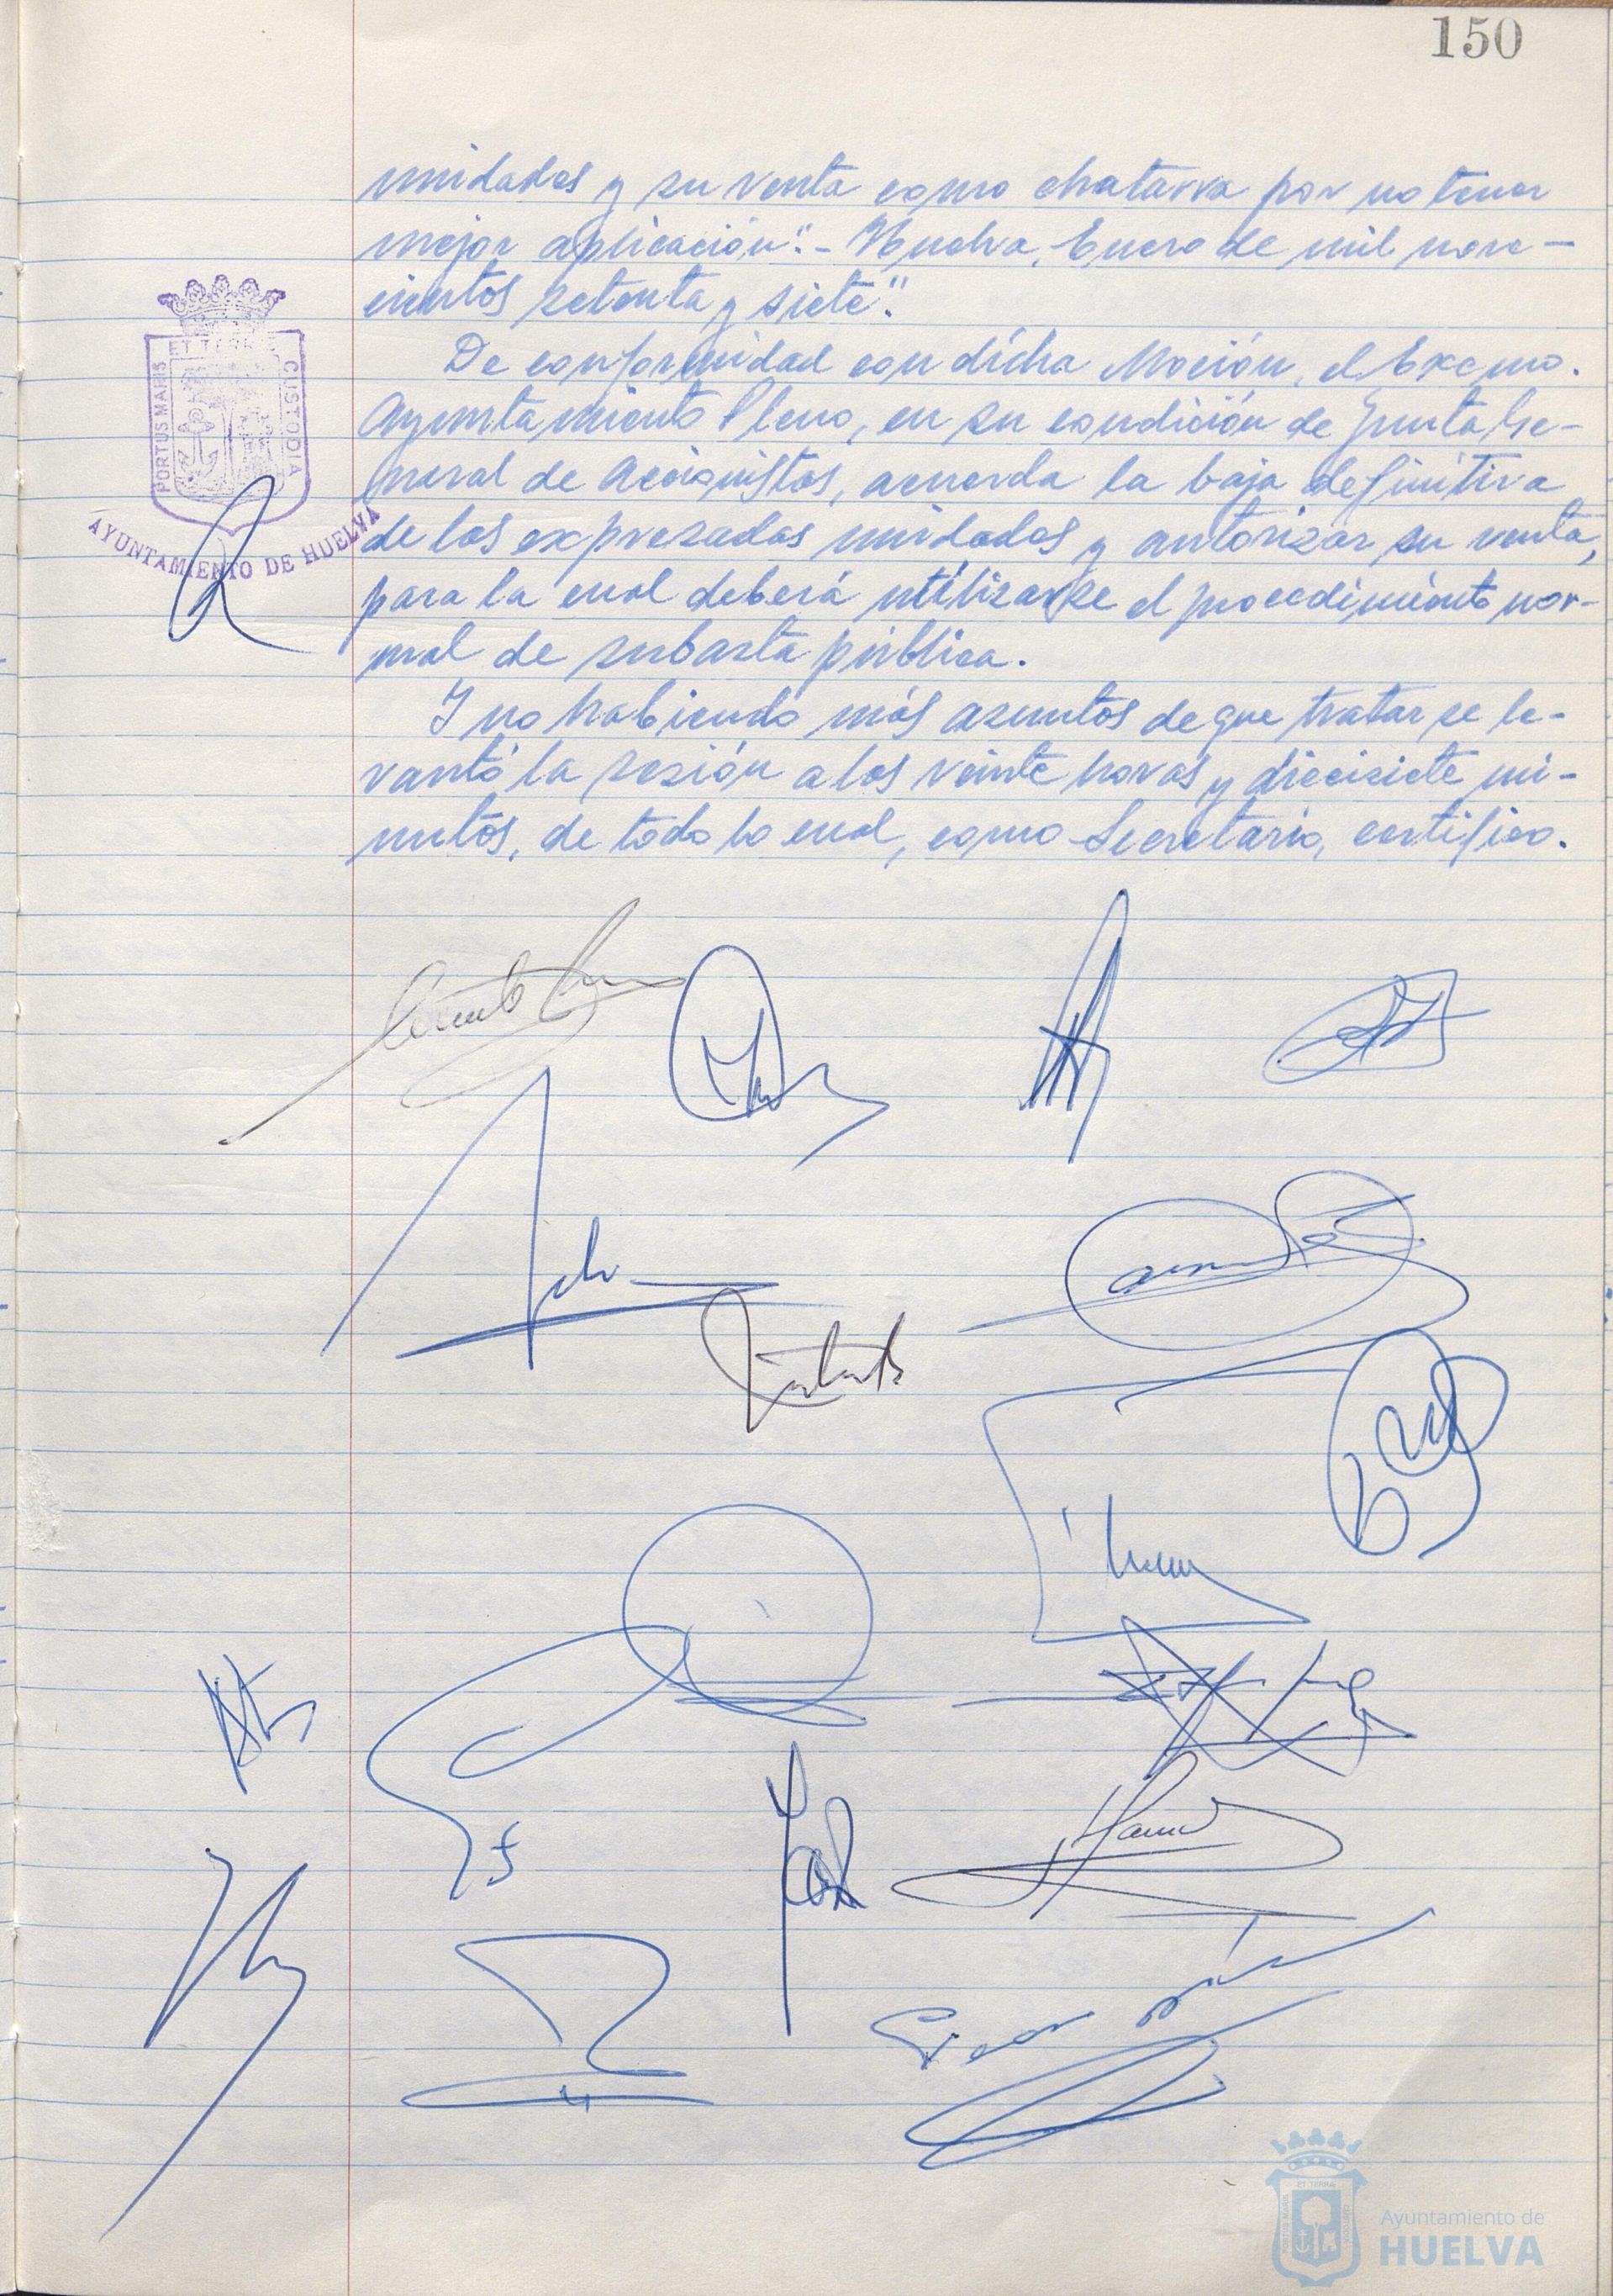 150
unidades y su venta como chatarra por no tener
mejor aplicación".- Huelva, Enero de mil nove-
cientos setenta y siete".
De conformidad con dicha Moción, el Excmo.
Ayuntamiento Pleno, en su condición de Junta Ge-
neral de Accionistas, acuerda la baja definitiva
de las expresadas unidades y autorizar su venta,
para la cual deberá utilizarse el procedimiento nor-
mal de subasta pública.
Y no habiendo más asuntos de que tratar se le-
vantó la sesión a las veinte horas y diecisiete mi-
nutos, de todo lo cual, como Secretario, certifico.
PORTUS MARIS
ET TERRE
CUSTODIA
AYUNTAMIENTO DE HUELVA
Ayuntamiento de
HUELVA